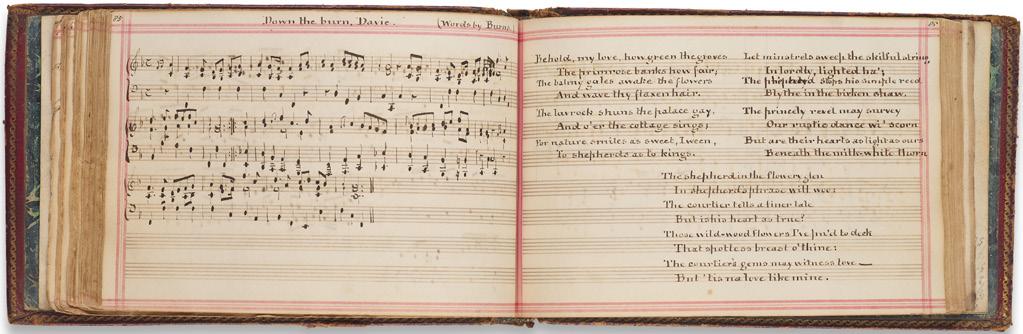 85.
Down the burn, Davie.
(Words by Burns.)
85.
Behold, my love, how green the groves
The primrose banks how fair;
The balmy gales awake the flowers
And wave thy flaxen hair.
The lav'rock shuns the palace gay,
And o'er the cottage sings;
For nature smiles as sweet, I ween,
To shepherds as to kings.
Let minstrels sweep the skilful string,
In lordly, lighted ha';
The shepherd stops his simple reed
Blythe in the birken shaw.
The princely revel may survey
Our rustic dance wi' scorn
But are their hearts as light as ours
Beneath the milk-white thorn
The shepherd in the flowery glen
In shepherd's phrase will woo:
The courtier tells a finer tale
But is his heart as true?
Those wild-wood flowers I've pu'd to deck
That spotless breast o' thine:
The courtier's gems may witness love —
But 'tis na love like mine.